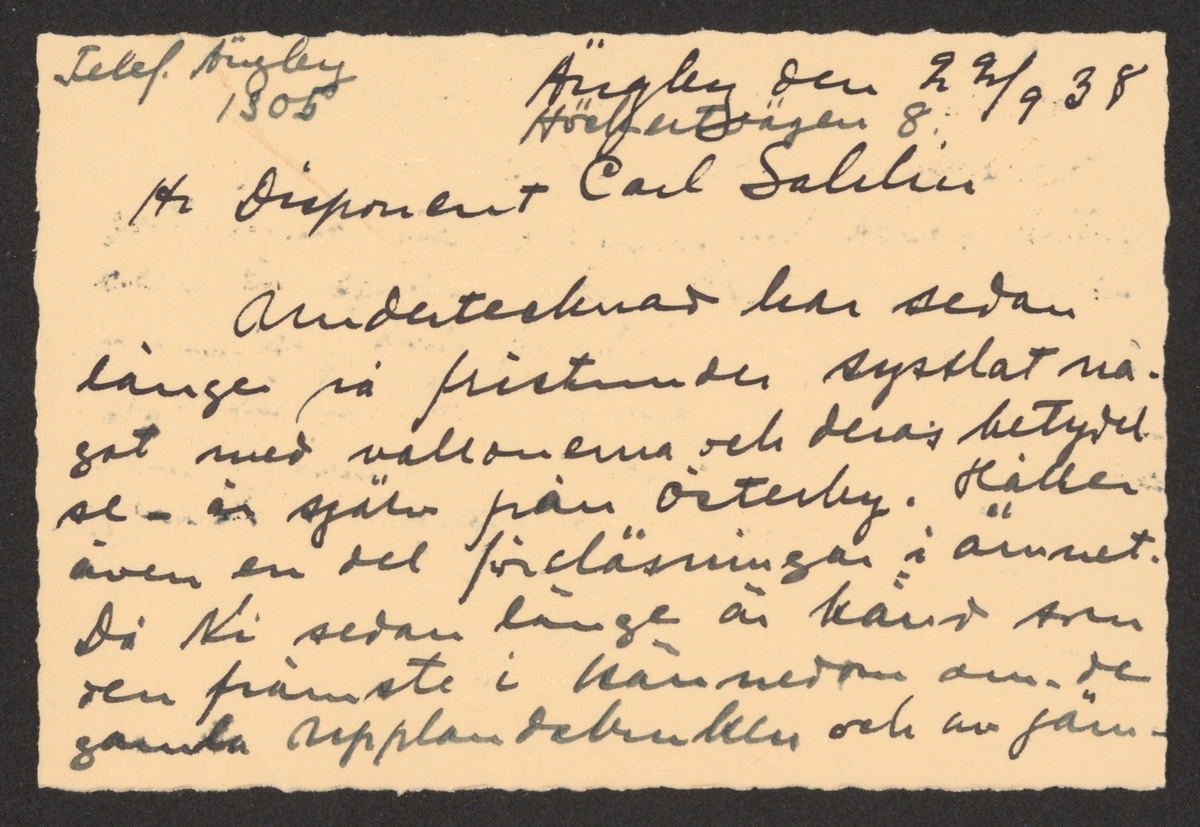 Telef. Ängby
1305
Ängby den 22/9 38
Höckertvägen 8.
Hr Disponent Carl Sahlin
Undertecknad har sedan
länge på fristunder sysslat nå-
got med vallonerna och deras betydel-
se - är själv från Österby. Håller
även en del föreläsningar i ämnet.
Då Ni sedan länge är känd som
den främste i kännedom om de
gamla Upplandsbruken och av järn-